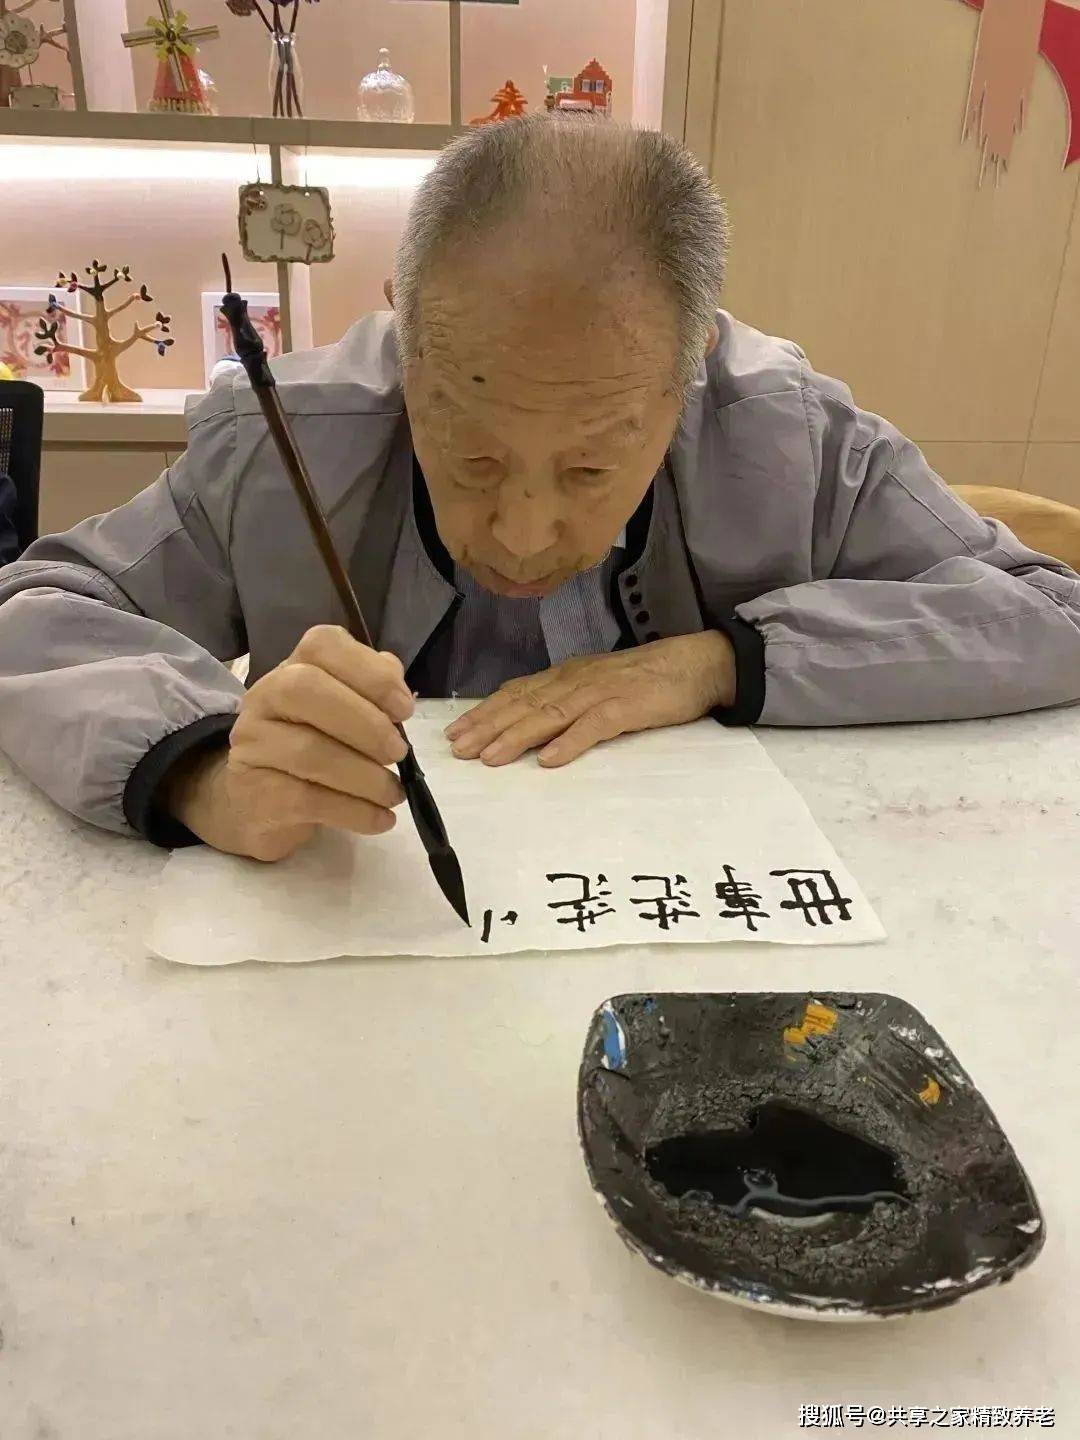 世事茫茫
搜狐号@共享之家精致养老